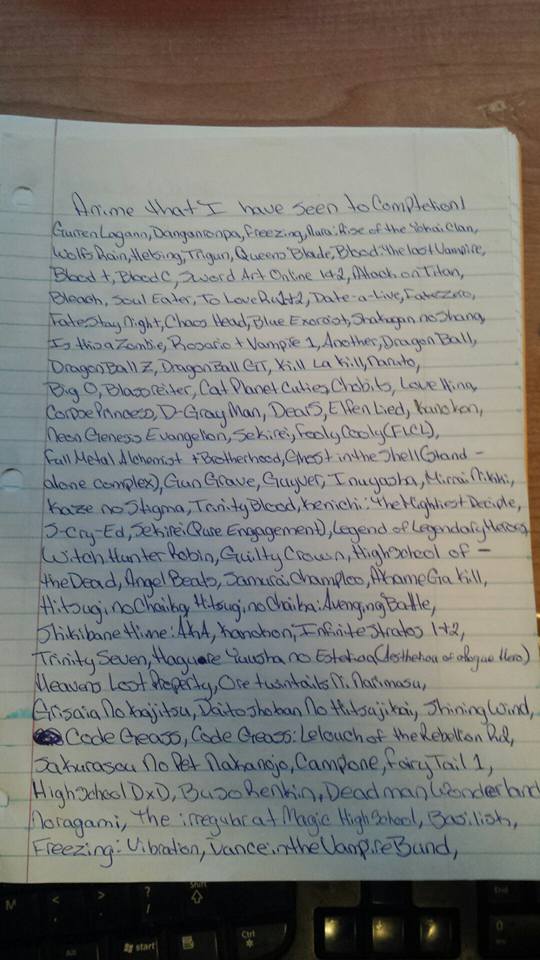 Anime that I have seen to Completion!
Gurren Lagann, Danganronpa, Freezing, Nura: Rise of the Yokai Clan,
Wolfs Rain, Helsing, Trigun, Queens Blade, Blood: the last Vampire,
Blood +, Blood C, Sword Art Online 1+2, Attack on Titan,
Bleach, Soul Eater, To Love Ru 1+2, Date-a-Live, Fate Zero,
Fate Stay Night, Chaos Head, Blue Exorcist, Shakugan no Shana,
Is this a Zombie, Rosario + Vampire 1, Another, Dragon Ball,
Dragon Ball Z, Dragon Ball GT, Kill La Kill, Naruto,
Big O, Blassreiter, Cat Planet Cuties, Chobits, Love Hina,
Corpse Princess, D-Gray Man, DearS, Elfen Lied, Kanokon,
Neon Genesis Evangelion, Sekirei, Fooly Cooly (FLCL),
Full Metal Alchemist + Brotherhood, Ghost in the Shell (Stand -
alone complex), Gun Grave, Guyver, Inuyasha, Mirai Nikki,
Kaze no Stigma, Trinity Blood, Kenichi: The Mightiest Deciple,
S-Cry-Ed, Sekirei (Pure Engagement), Legend of Legendary Heroes,
Witch Hunter Robin, Guilty Crown, High School of -
the Dead, Angel Beats, Samurai Champloo, Akame Ga Kill,
Hitsugi no Chaika, Hitsugi no Chaika: Avenging Battle,
Shikibane Hime: Aka, Kanokon, Infinite Stratos 1+2,
Trinity Seven, Hagure Yuusha no Estetica (Aesthetica of a Rogue Hero)
Heavens Lost Property, Ore twintails Ni Narimasu,
Grisaia No Kajitsu, Daitoshokan No Hitsujikai, Shining Wind,
Code Geass, Code Geass: Lelouch of the Rebellion R2,
Sakurasou No Pet Nakanojo, Campione, Fairy Tail 1,
High School DxD, Buso Renkin, Dead man Wonderland
Noragami, The irregular at Magic High School, Basilisk,
Freezing: Vibration, Dance in the Vampire Bund,
M
<
,
>
.
?
/
Shift
Alt
start
Ctrl
End